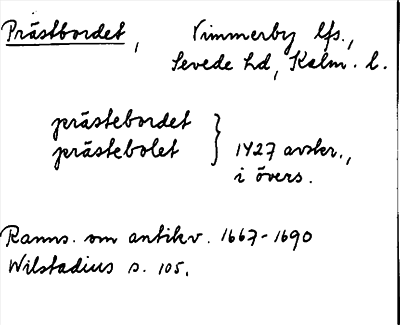 Prästbordet, Vimmerby lfs.,
Sevede hd, Kalm. l.
prästebordet
prästebolet } 1427 avskr.,
i övers.
Ranns. om antikv. 1667-1690
Wilstadius s. 105.